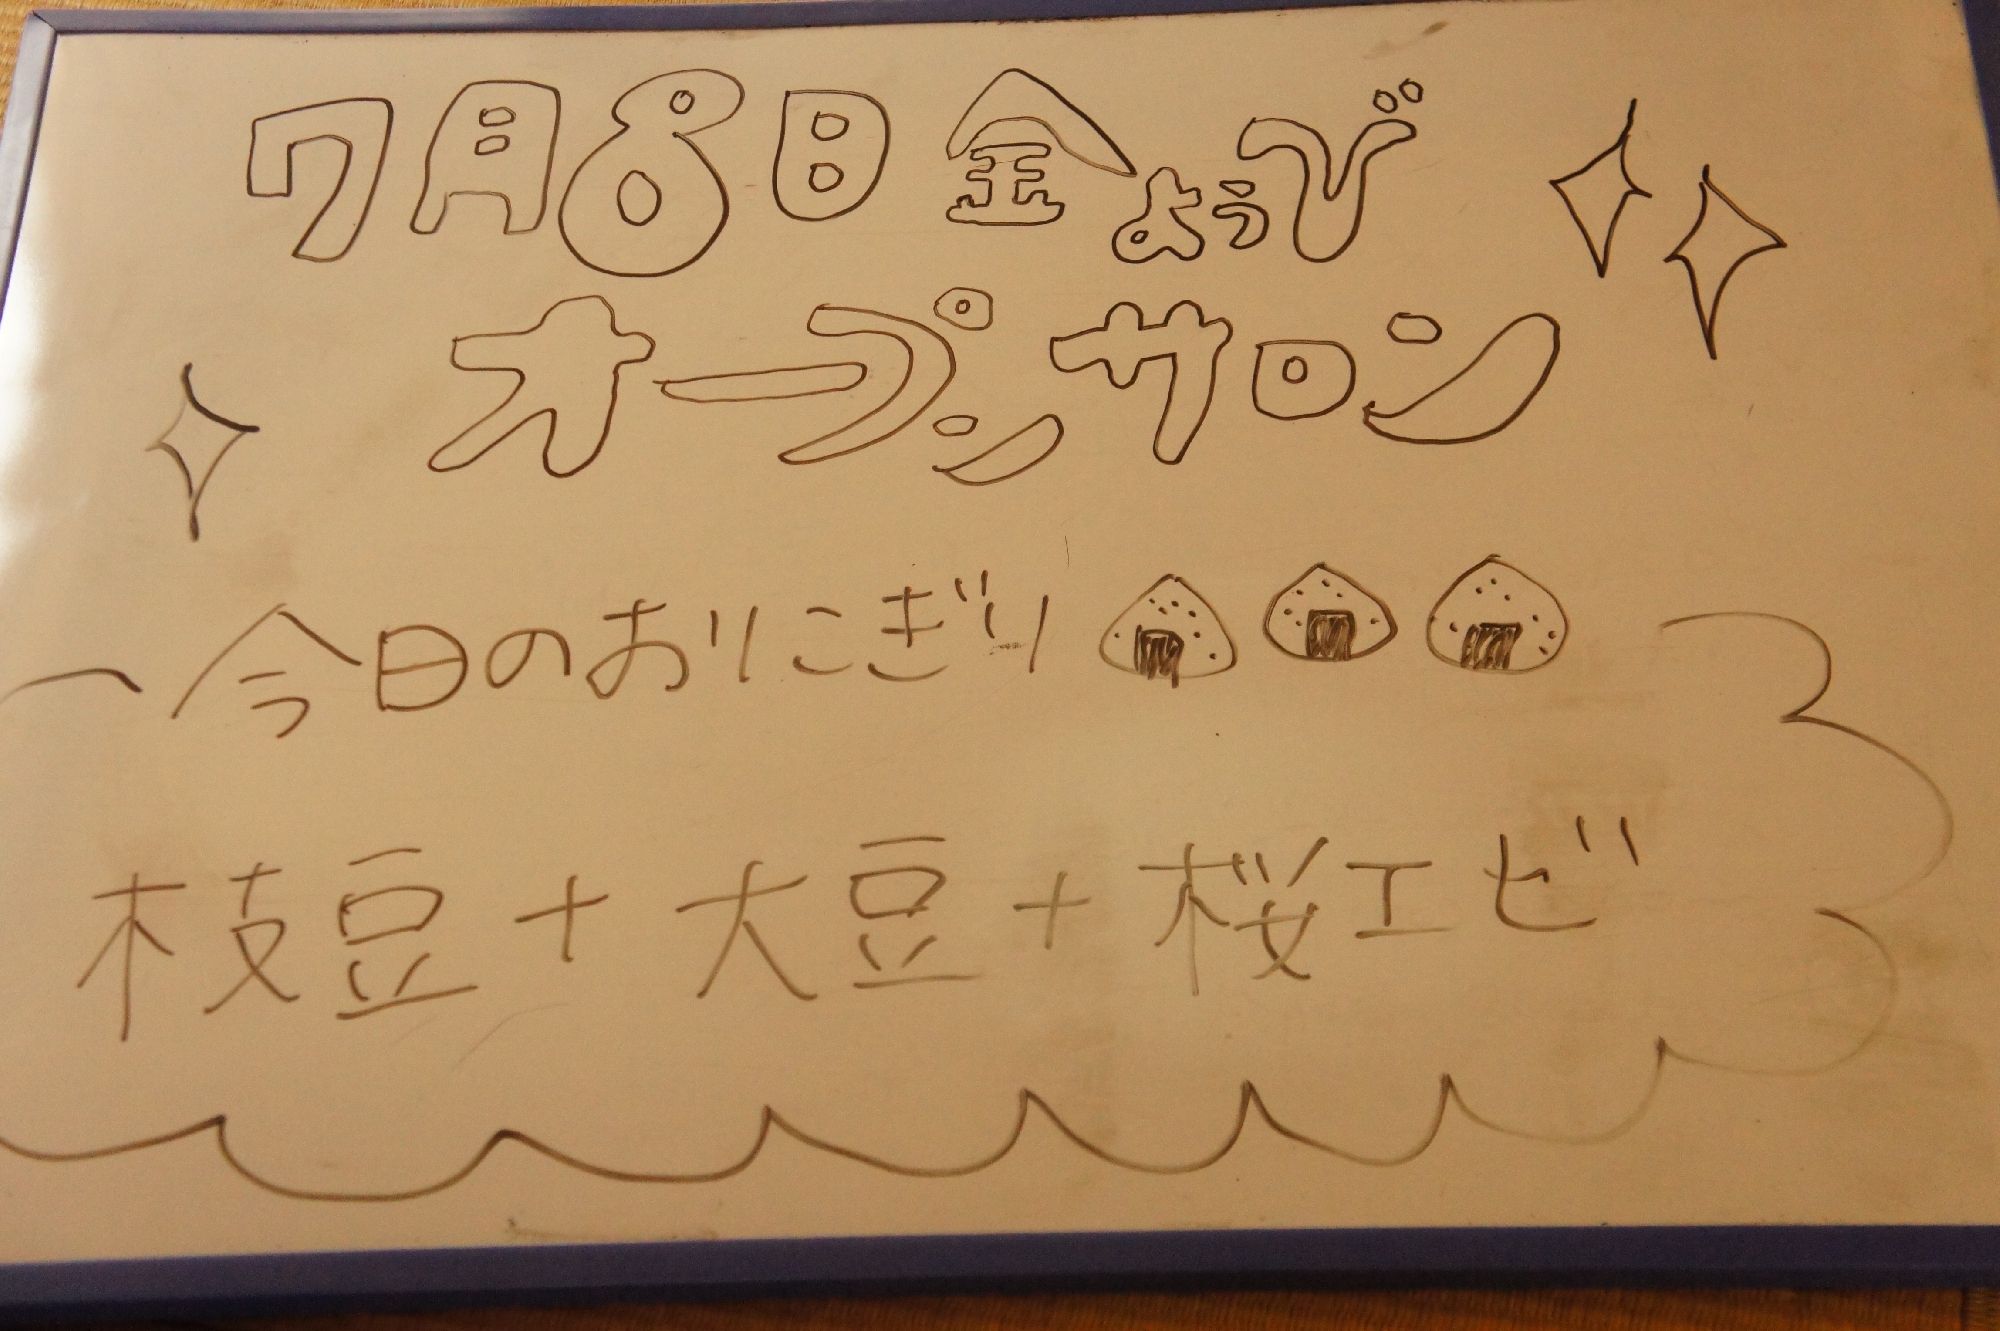 7月8日金ようび
オープンサロン
今日のおにぎり
枝豆+大豆+桜エビ